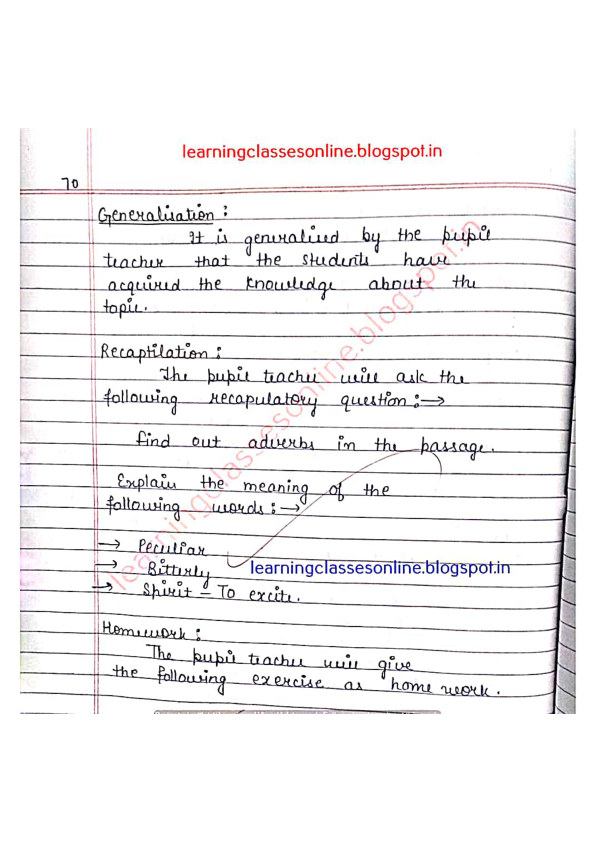 learningclassesonline.blogspot.in
70
Generalisation :
It is generalised by the pupil
teacher that the students have
acquired the knowledge about the
topic.
Recaptilation :
The pupil teacher will ask the
following recapulatory question :→
find out adverbs in the passage.
Explain the meaning of the
following words :→
→ Peculiar
→ Bitterly
learningclassesonline.blogspot.in
→ Spirit – To excite.
Homework :
The pupil teacher will give
the following exercise as home work.
learningclassesonline.blogspot.in